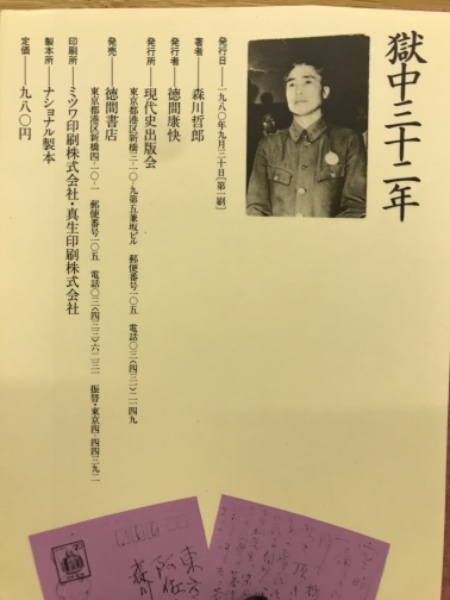 獄中三十二年
発行日――一九八〇年九月三十日[第一刷]
著者――森川哲郎
発行者――徳間康快
発行所――現代史出版会
東京都港区新橋三-二〇-九第五兼坂ビル 郵便番号一〇五 電話〇三(四三二)二一四九
発売――徳間書店
東京都港区新橋四-一〇-一 郵便番号一〇五 電話〇三(四三三)六二三一 振替・東京四-四四三九二
印刷所――ミツワ印刷株式会社・真生印刷株式会社
製本所――ナショナル製本
定価――九八〇円